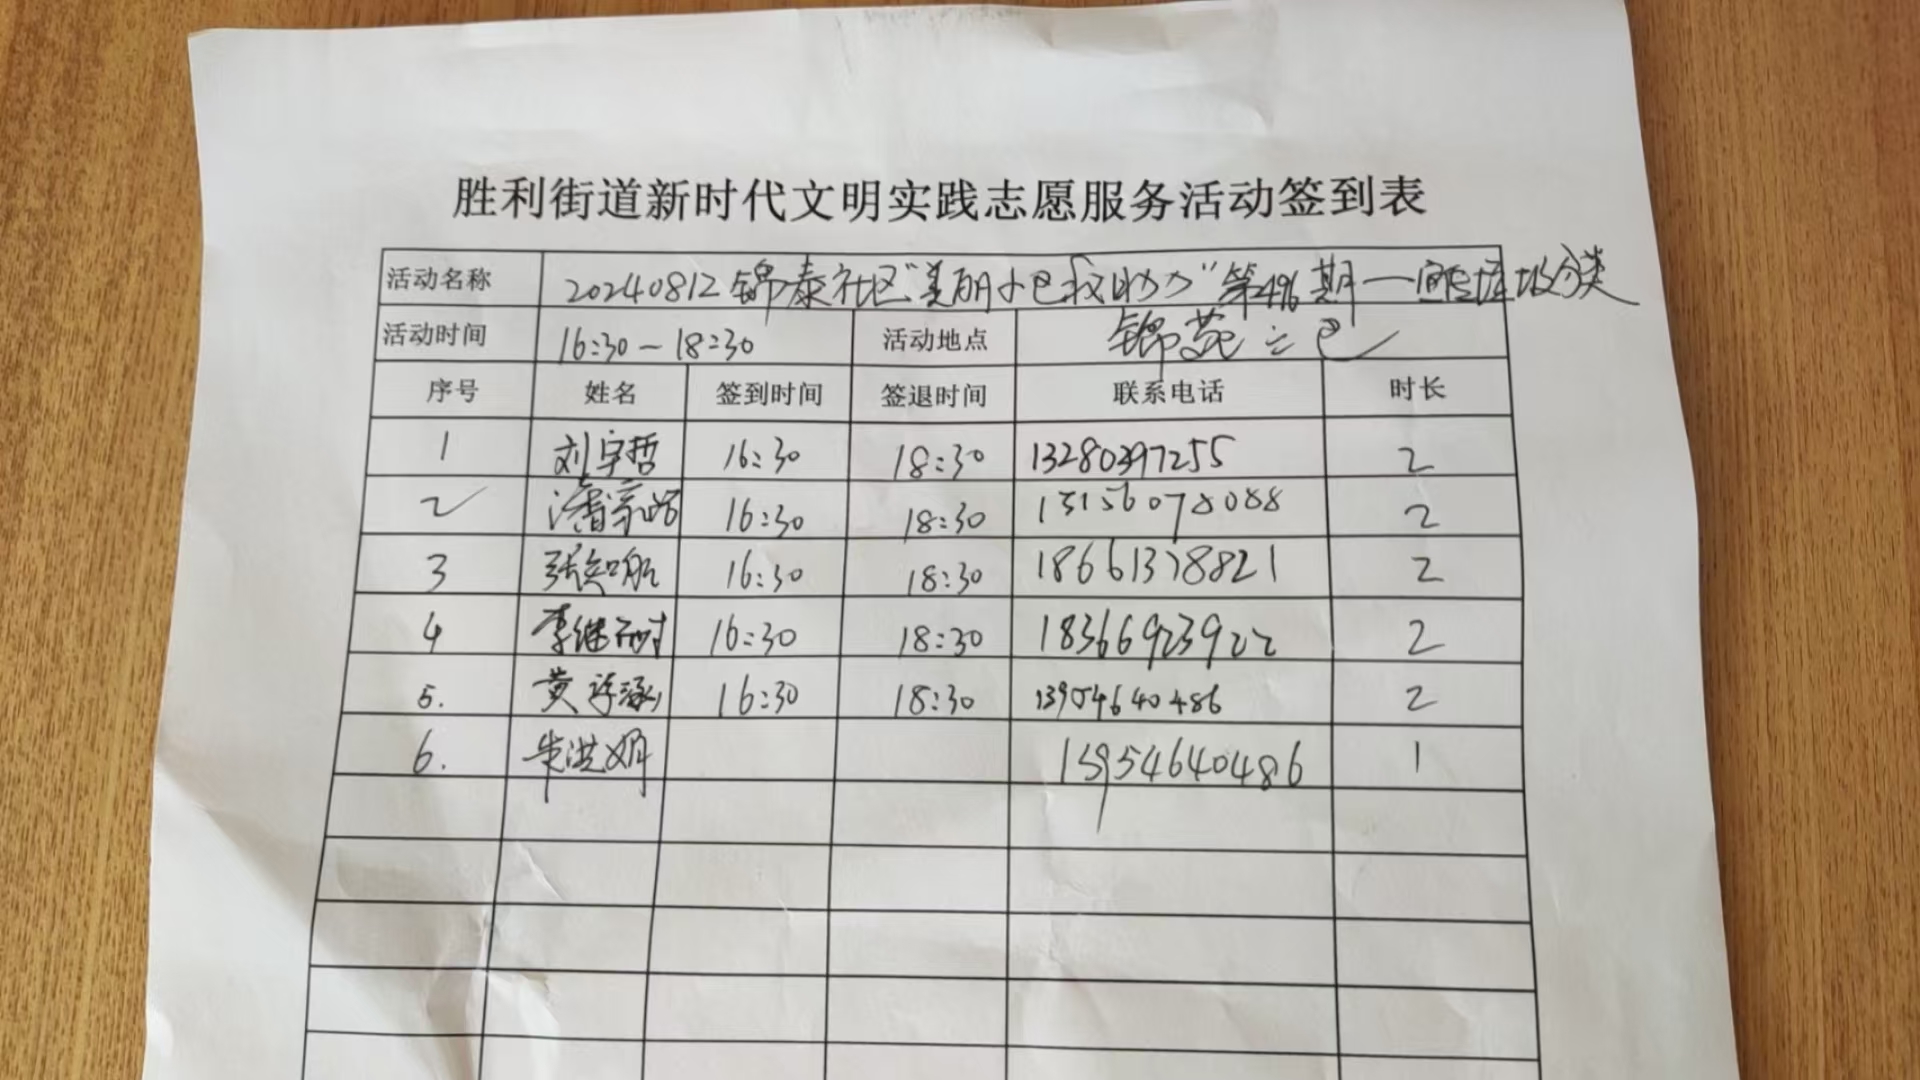 胜利街道新时代文明实践志愿服务活动签到表
活动名称 20240812锦泰社区"美丽小巴我助力"第496期—宣传垃圾分类
活动时间 16:30—18:30 活动地点 锦苑三巴
序号 姓名 签到时间 签退时间 联系电话 时长
1 刘宇哲 16:30 18:30 13280397255 2
2 潘家皓 16:30 18:30 15156078088 2
3 张知航 16:30 18:30 18661378821 2
4 李继 16:30 18:30 18366923922 2
5. 黄梓涵 16:30 18:30 13954640486 2
6. 朱洪娟 13954640486 1